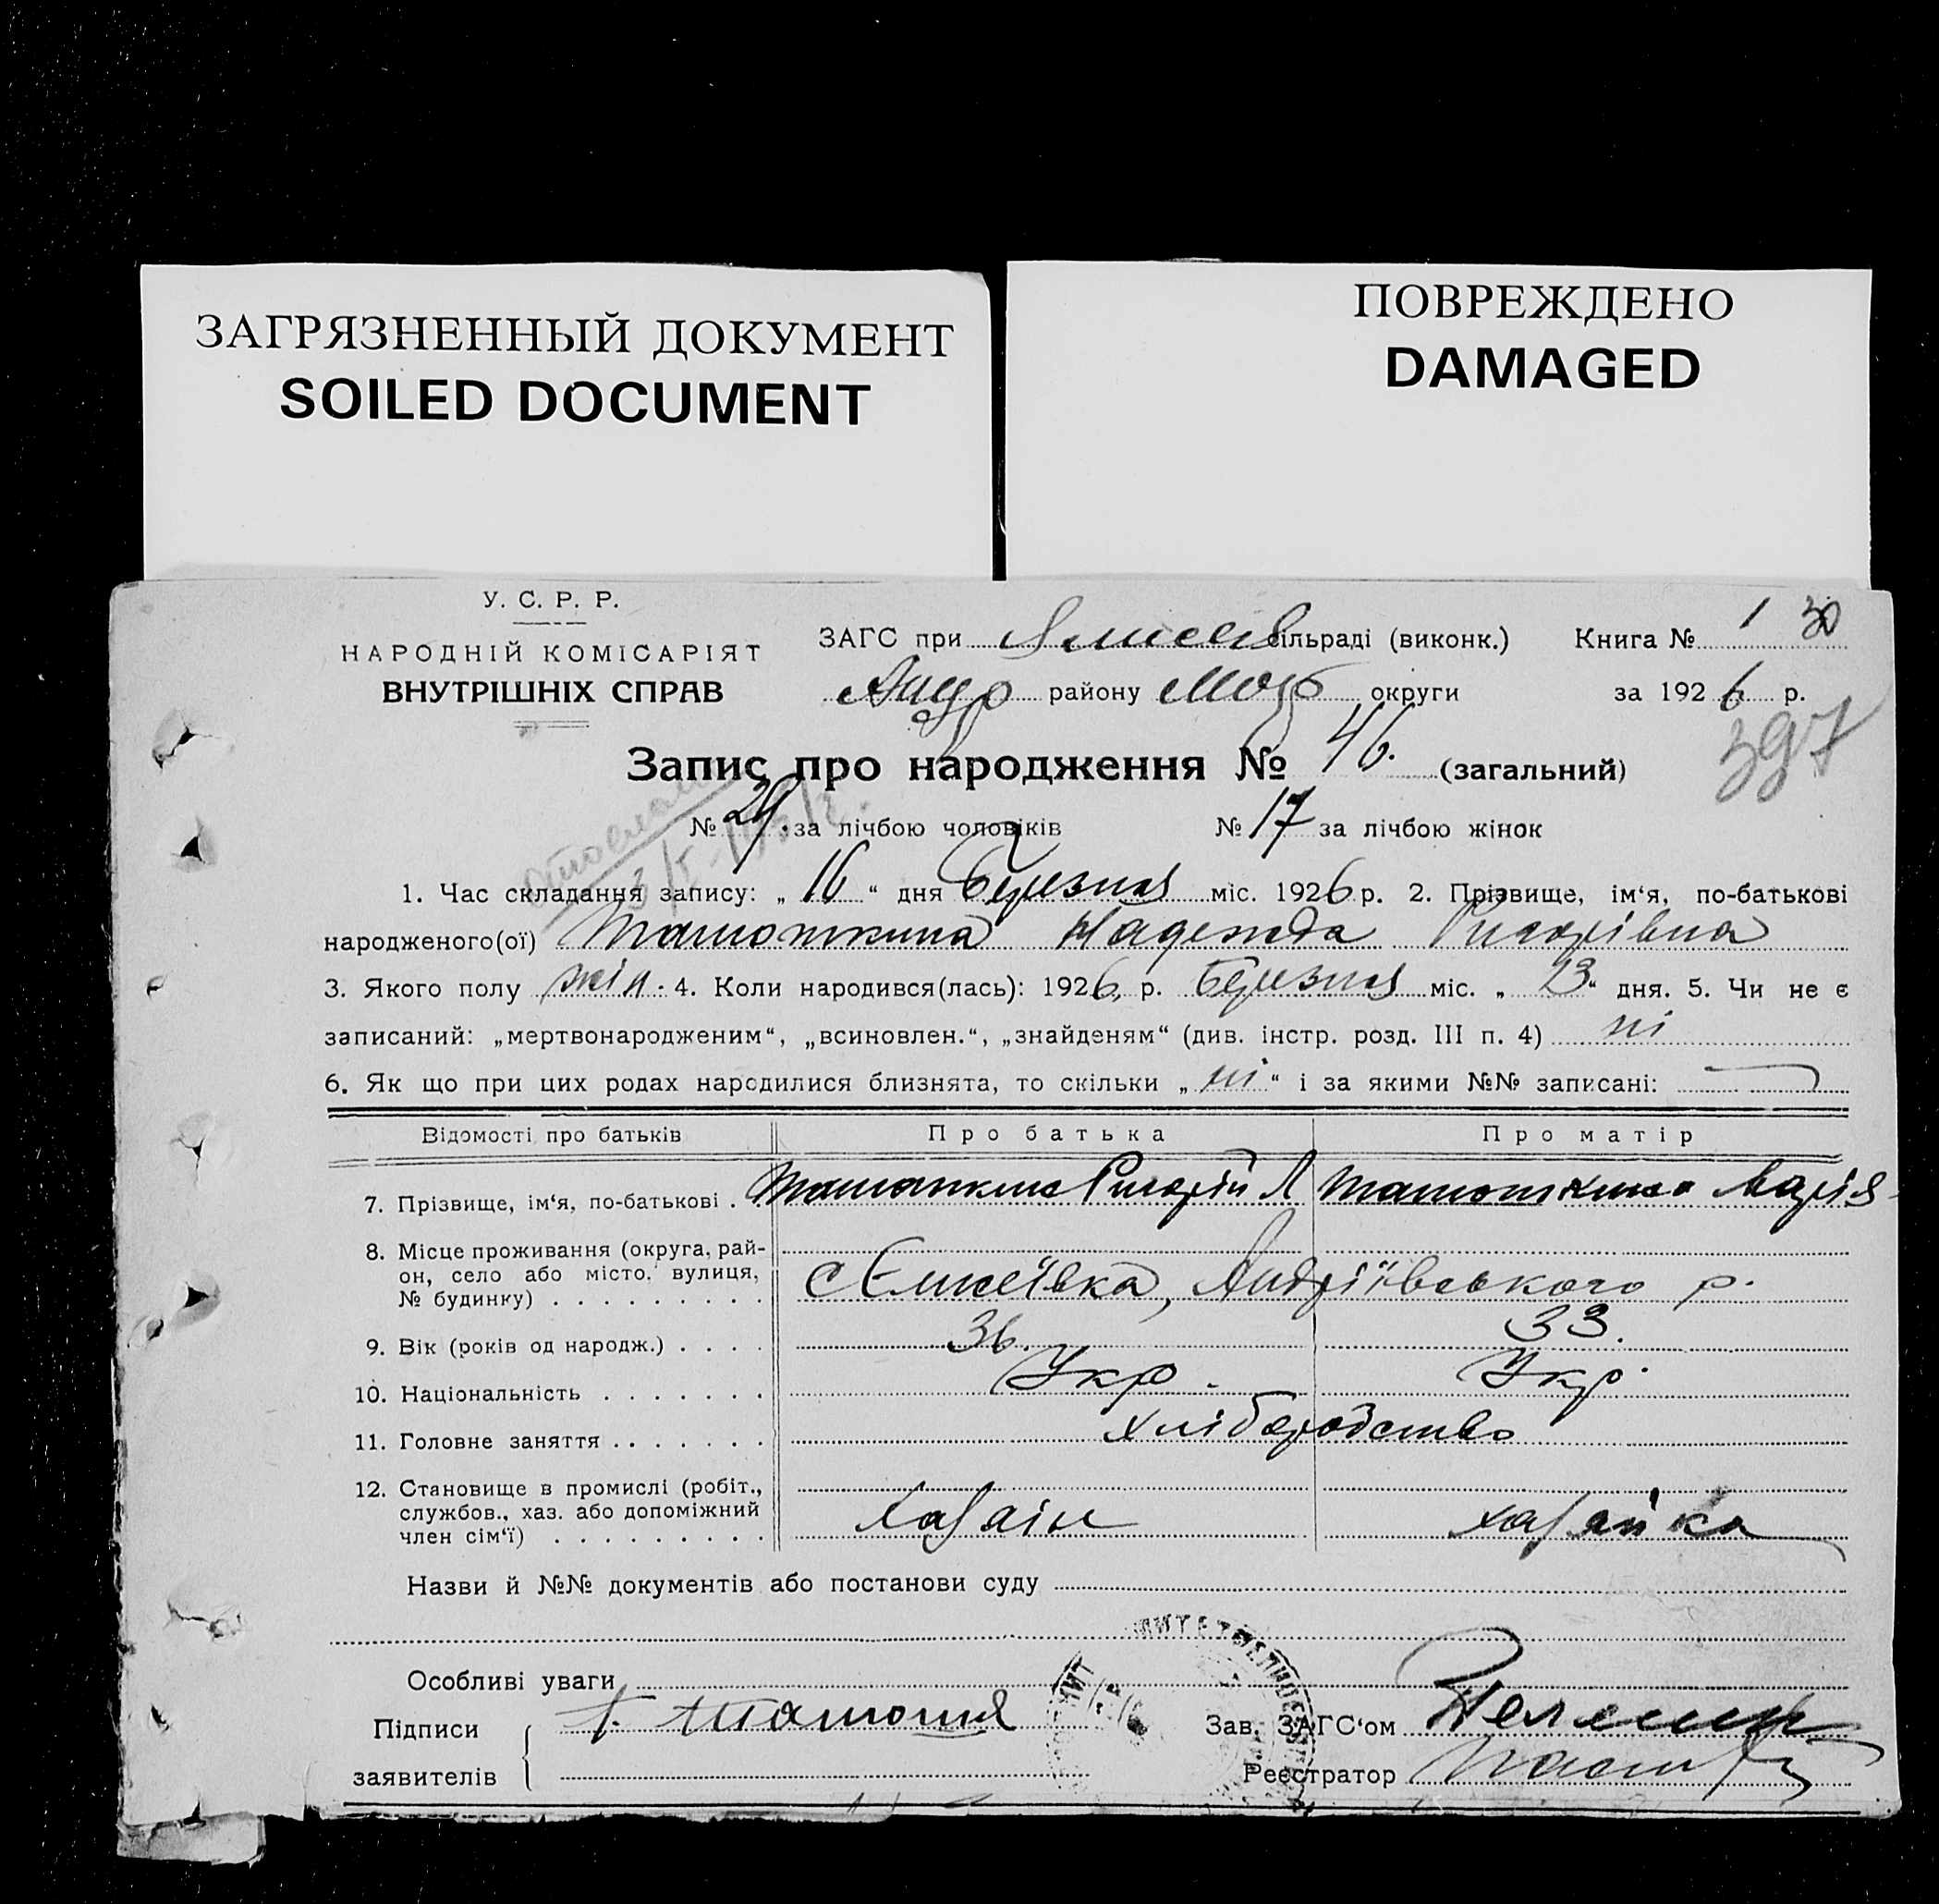 ЗАГРЯЗНЕННЫЙ ДОКУМЕНТ
SOILED DOCUMENT
ПОВРЕЖДЕНО
DAMAGED
У. С. Р. Р.
НАРОДНІЙ КОМІСАРІЯТ
ВНУТРІШНІХ СПРАВ
ЗАГС при сільраді (виконк.) Книга № 1 30
Андр району округи за 1926 р.
397
Запис про народження № 46. (загальний)
№ 29. за лічбою чоловіків № 17 за лічбою жінок
1. Час складання запису: „16“ дня Березня міс. 1926 р. 2. Прізвище, ім‘я, по-батькові
народженого(ої) Надежда Григорівна
3. Якого полу жін. 4. Коли народився(лась): 1926, р. Березня міс. „13“ дня. 5. Чи не є
записаний: „мертвонародженим“, „всиновлен.“, „знайденям“ (див. інстр. розд. III п. 4) ні
6. Як що при цих родах народилися близнята, то скільки „ні“ і за якими №№ записані:
Відомості про батьків Про батька Про матір
7. Прізвище, ім‘я, по-батькові . Григорій Марія
8. Місце проживання (округа, рай-
он, село або місто, вулиця,
№ будинку) . . . . . . . . . с Єлисеївка, Андріївського р.
9. Вік (років од народж.) . . . . 36. 33.
10. Національність . . . . . . . Укр. Укр.
11. Головне заняття . . . . . . . хліборобство
12. Становище в промислі (робіт.,
службов., хаз. або допоміжний
член сім‘ї) . . . . . . . . . Хазаін хазяйка
Назви й №№ документів або постанови суду
Особливі уваги
Підписи
заявителів
Зав. ЗАГС‘ом
Реєстратор